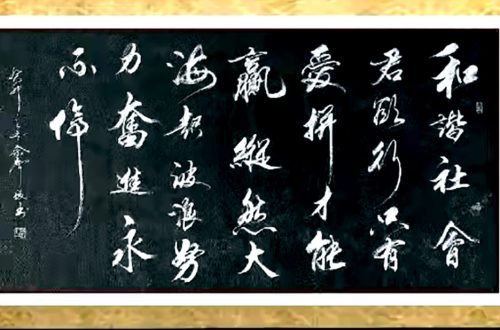 和諧社會
君欲行只有
愛拼才能
贏縱然大
海起波浪努
力奮進永
不停
癸卯